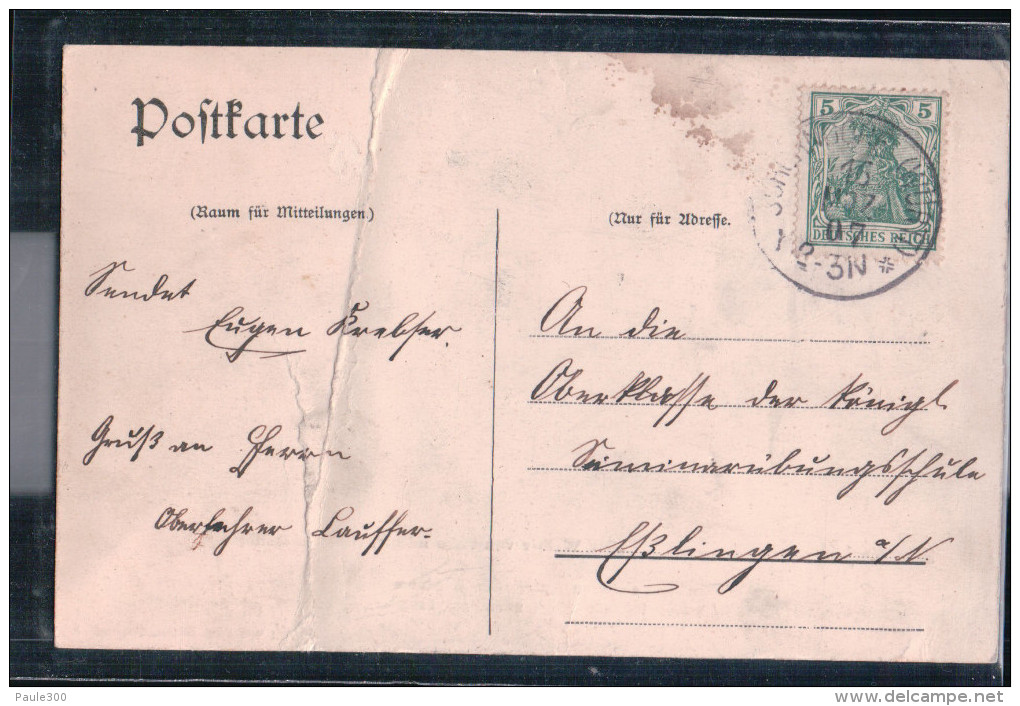 Postkarte
(Raum für Mitteilungen)
(Nur für Adresse.
5 5
DEUTSCHES REICH
16
MRZ
07
2-3N *
Sendet
Eugen Krebser.
Gruß an Herrn
Oberlehrer Lauffer.
An die
Oberklasse der Königl.
Seminarübungsschule
Eßlingen a/N.
Paule300
delcampe.net